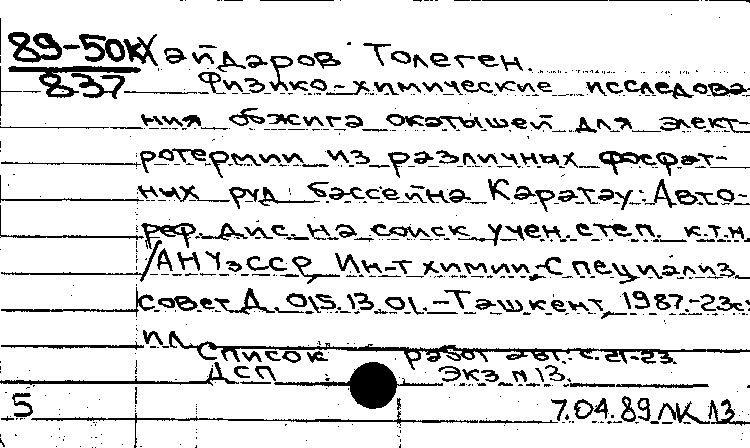 89-50К Хайдаров Толеген.
837 Физико-химические исследова
ния обжига окатышей для элект
ротермии из различных фосфат-
ных руд бассейна Каратау: Авто-
реф. дис. на соиск. учен. степ. к.т.н
/АН УзССР, Ин-т химии, Специализ
совет Д. 015.13.01.-Ташкент, 1987.-23с:
ил
Список работ авт.: с. 21-23.
ДСП Экз. N 13.
5 7.04.89